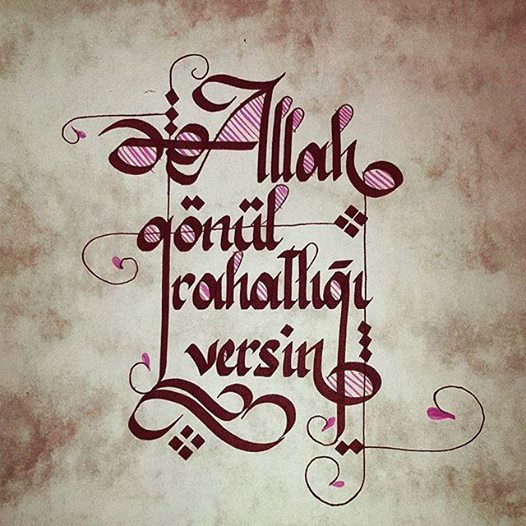 Allah
gönül
rahatlığı
versin